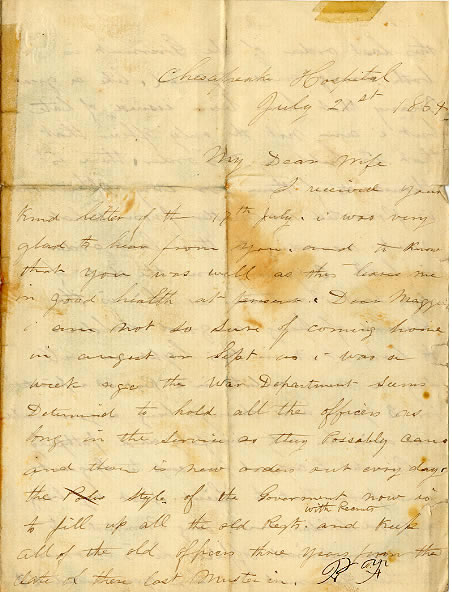 Chesapeake Hospital
July 21st 1864
My Dear Wife
I received your
kind letter of the 17th July. i was very
glad to hear from you. and to know
that you was well as this leaves me
in good health at present. Dear Maggie
i am not so sure of coming home
in august or Sept as i was a
week ago the War Department seems
Determined to hold all the officers as
long in the service as they Possably can
and there is new orders out every day.
the style of the Government now is
to fill up all the old Regts. with Recruits and Keep
all of the old officers three years from the
date of there last Muster in.